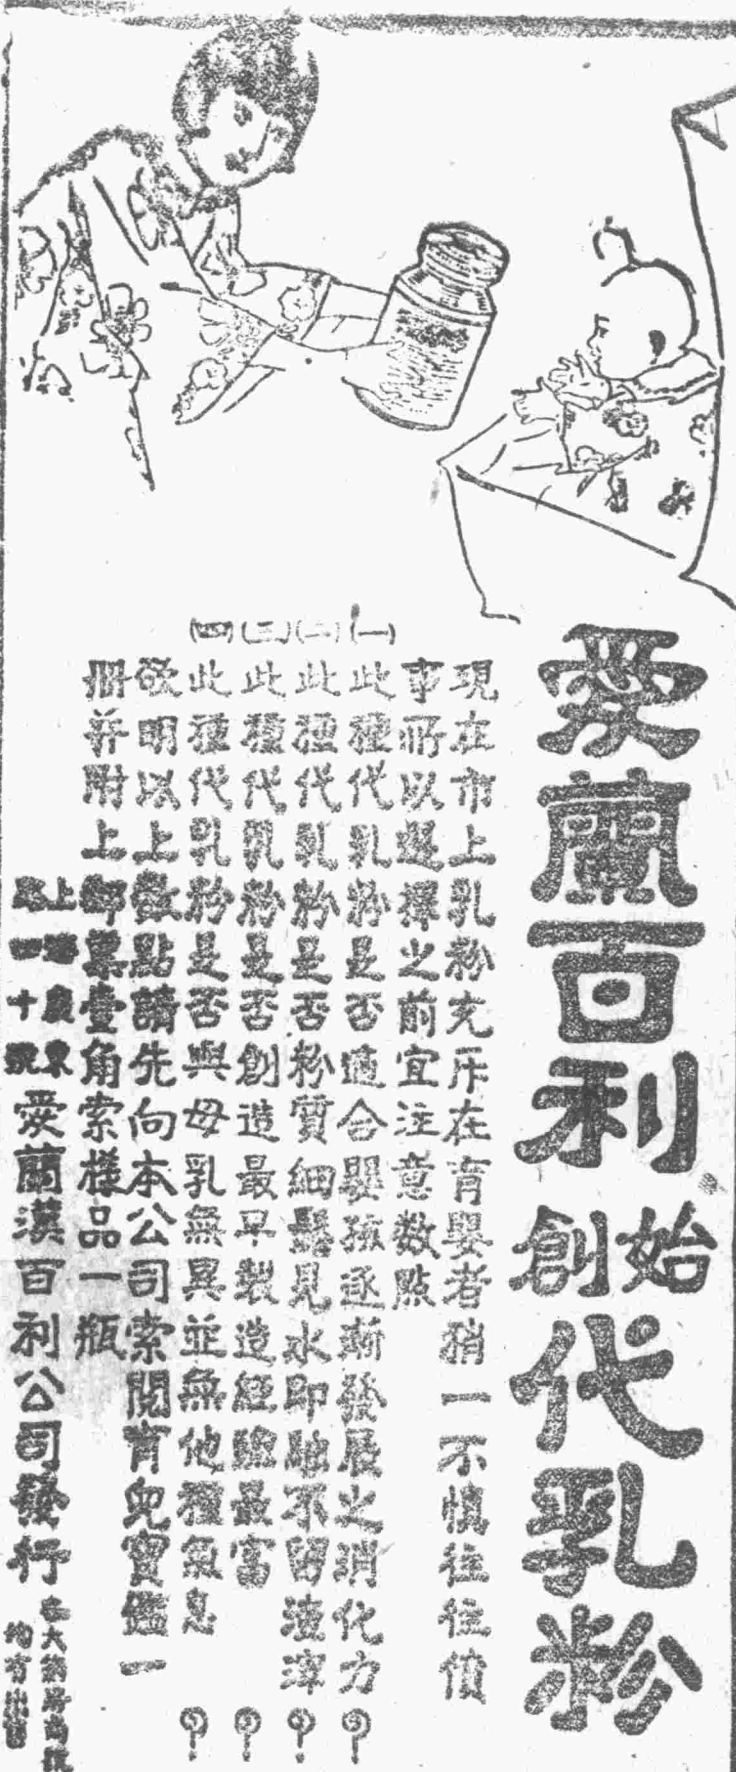 愛蘭百利
始創
代乳粉
現在市上乳粉充斥在育嬰者稍一不慎往往僨
事所以選擇之前宜注意数點
(一)此種代乳粉是否適合嬰孩逐漸發展之消化力?
(二)此種代乳粉是否粉質細鬆見水即融不留渣滓?
(三)此種代乳粉是否創造最早製造經驗最富?
(四)此種代乳粉是否與母乳無異並無他種氣息?
欲明以上數點請先向本公司索閱育兒寶鑑一
冊并附上郵票壹角索樣品一瓶
上海廣東
路四十號
愛蘭漢百利公司發行
各大藥房商號
均有出售